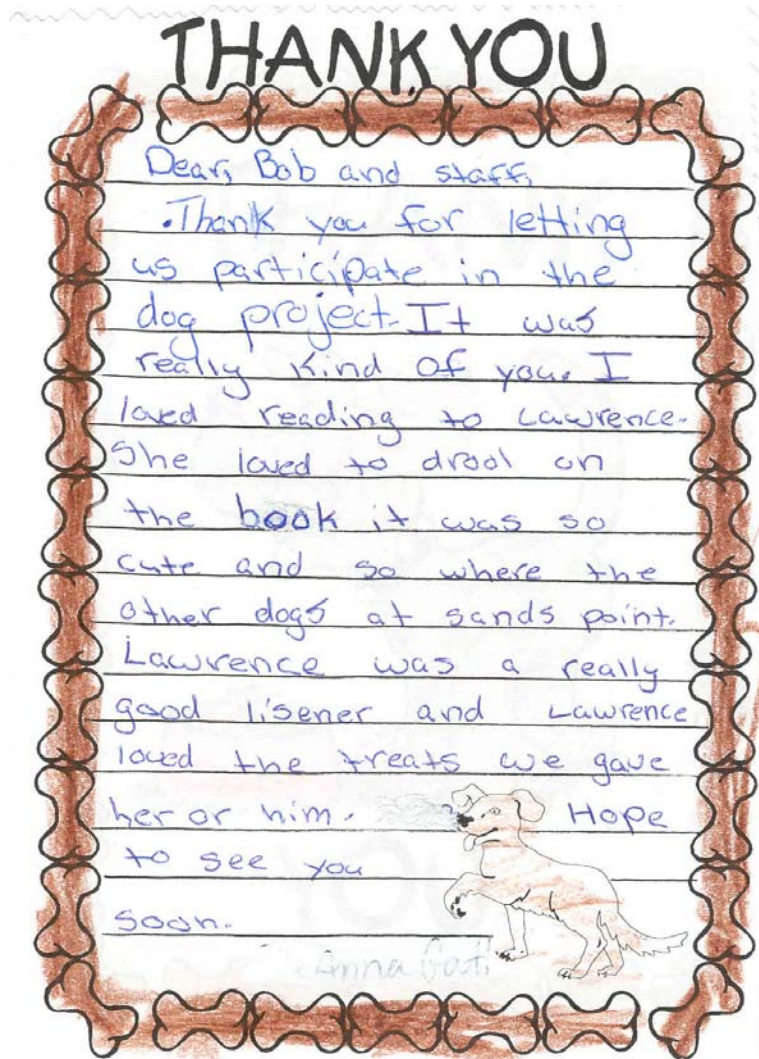 THANK YOU
Dear, Bob and staff,
.Thank you for letting
us participate in the
dog project. It was
really kind of you. I
loved reading to Lawrence.
She loved to drool on
the book it was so
cute and so where the
other dogs at sands point.
Lawrence was a really
good lisener and Lawrence
loved the treats we gave
her or him. Hope
to see you
soon.
Anna